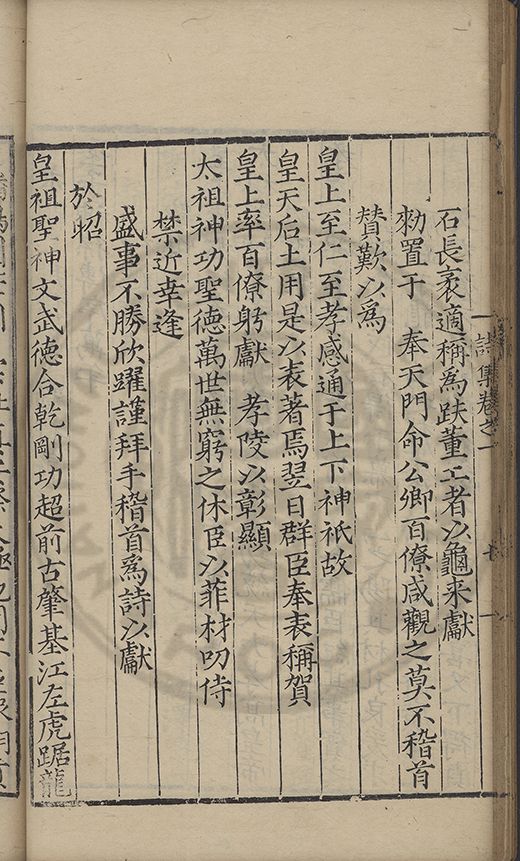 詩集卷之一
石長袤適稱為趺董工者以龜来獻
勑置于 奉天門命公卿百僚咸觀之莫不稽首
賛歎以為
皇上至仁至孝感通于上下神祇故
皇天后土用是以表著焉翌日群臣奉表稱賀
皇上率百僚躬獻 孝陵以彰顯
太祖神功聖德萬世無窮之休臣以菲材叨侍
禁近幸逢
盛事不勝欣躍謹拜手稽首為詩以獻
於昭
皇祖聖神文武德合乾剛功超前古肇基江左虎踞龍